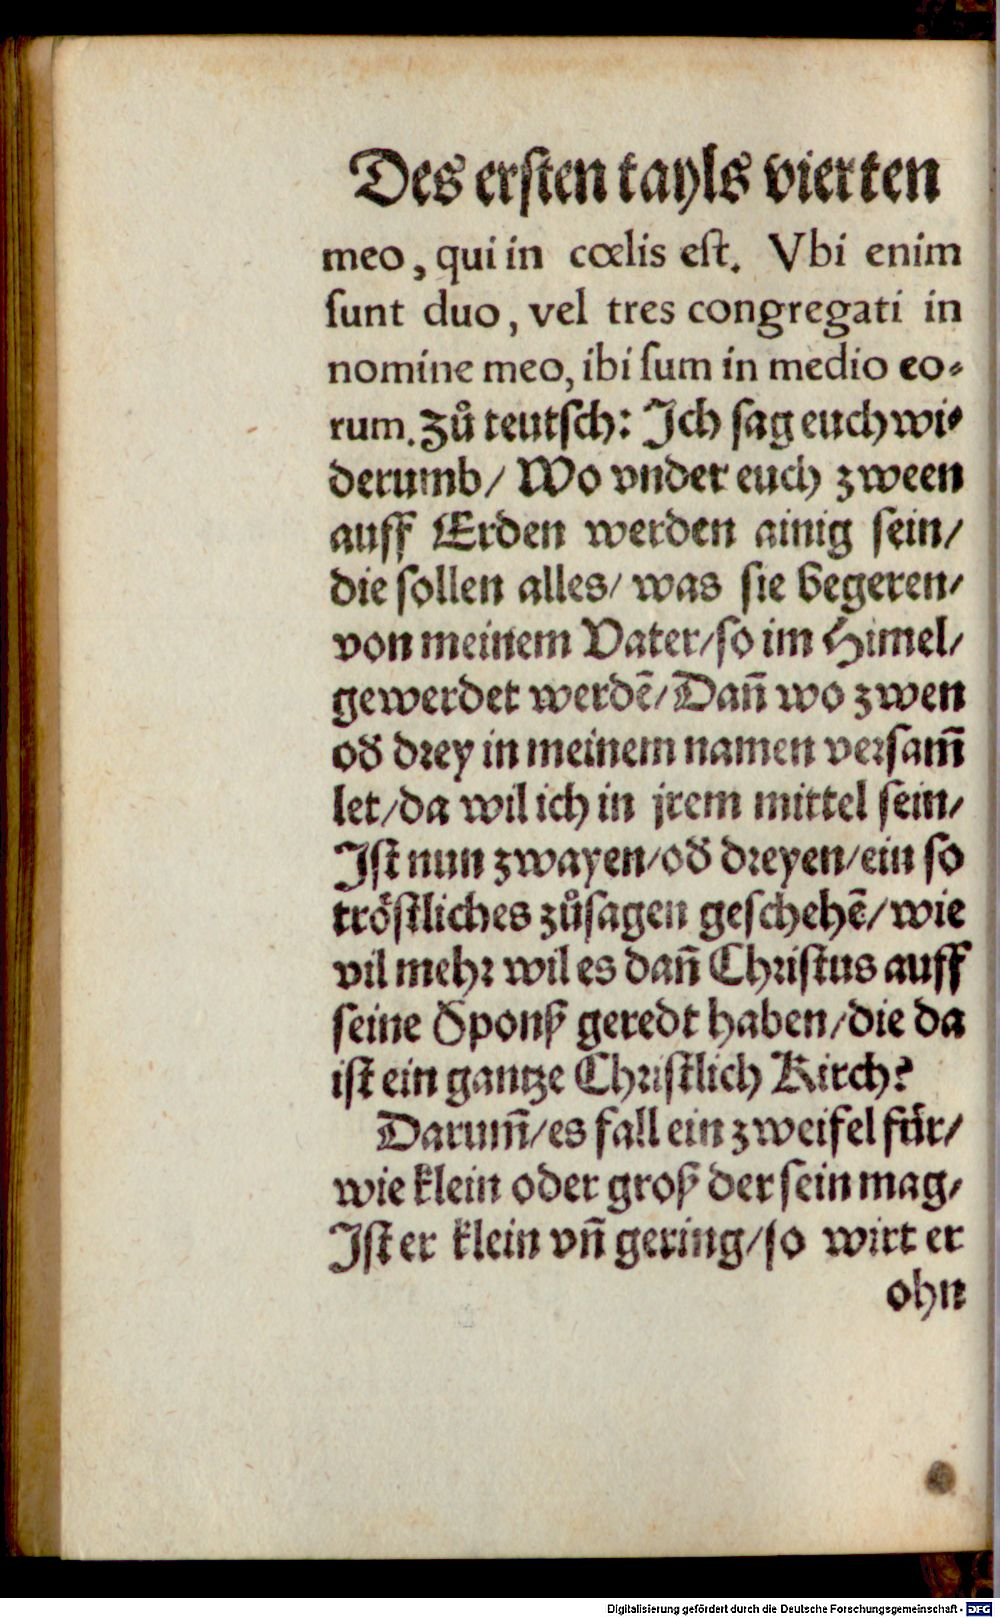 Des ersten tayls vierten
meo, qui in cœlis est. Vbi enim
sunt duo, vel tres congregati in
nomine meo, ibi sum in medio eo⸗
rum. Zů teutsch: Jch sag euch wi⸗
derumb/ Wo vnder euch zween
auff Erden werden ainig sein/
die sollen alles/ was sie begeren/
von meinem Vater/so im Himel/
gewerdet werdẽ/Dañ wo zwen
oď drey in meinem namen versam̃
let/da wil ich in jrem mittel sein/
Jst nun zwayen/oď dreyen/ein so
tröstliches zůsagen geschehẽ/wie
vil mehr wil es dañ Christus auff
seine Sponß geredt haben/die da
ist ein gantze Christlich Kirch?
Darum̃/es fall ein zweifel für/
wie klein oder groß der sein mag/
Jst er klein vñ gering/so wirt er
ohn
Digitalisierung gefördert durch die Deutsche Forschungsgemeinschaft - DFG